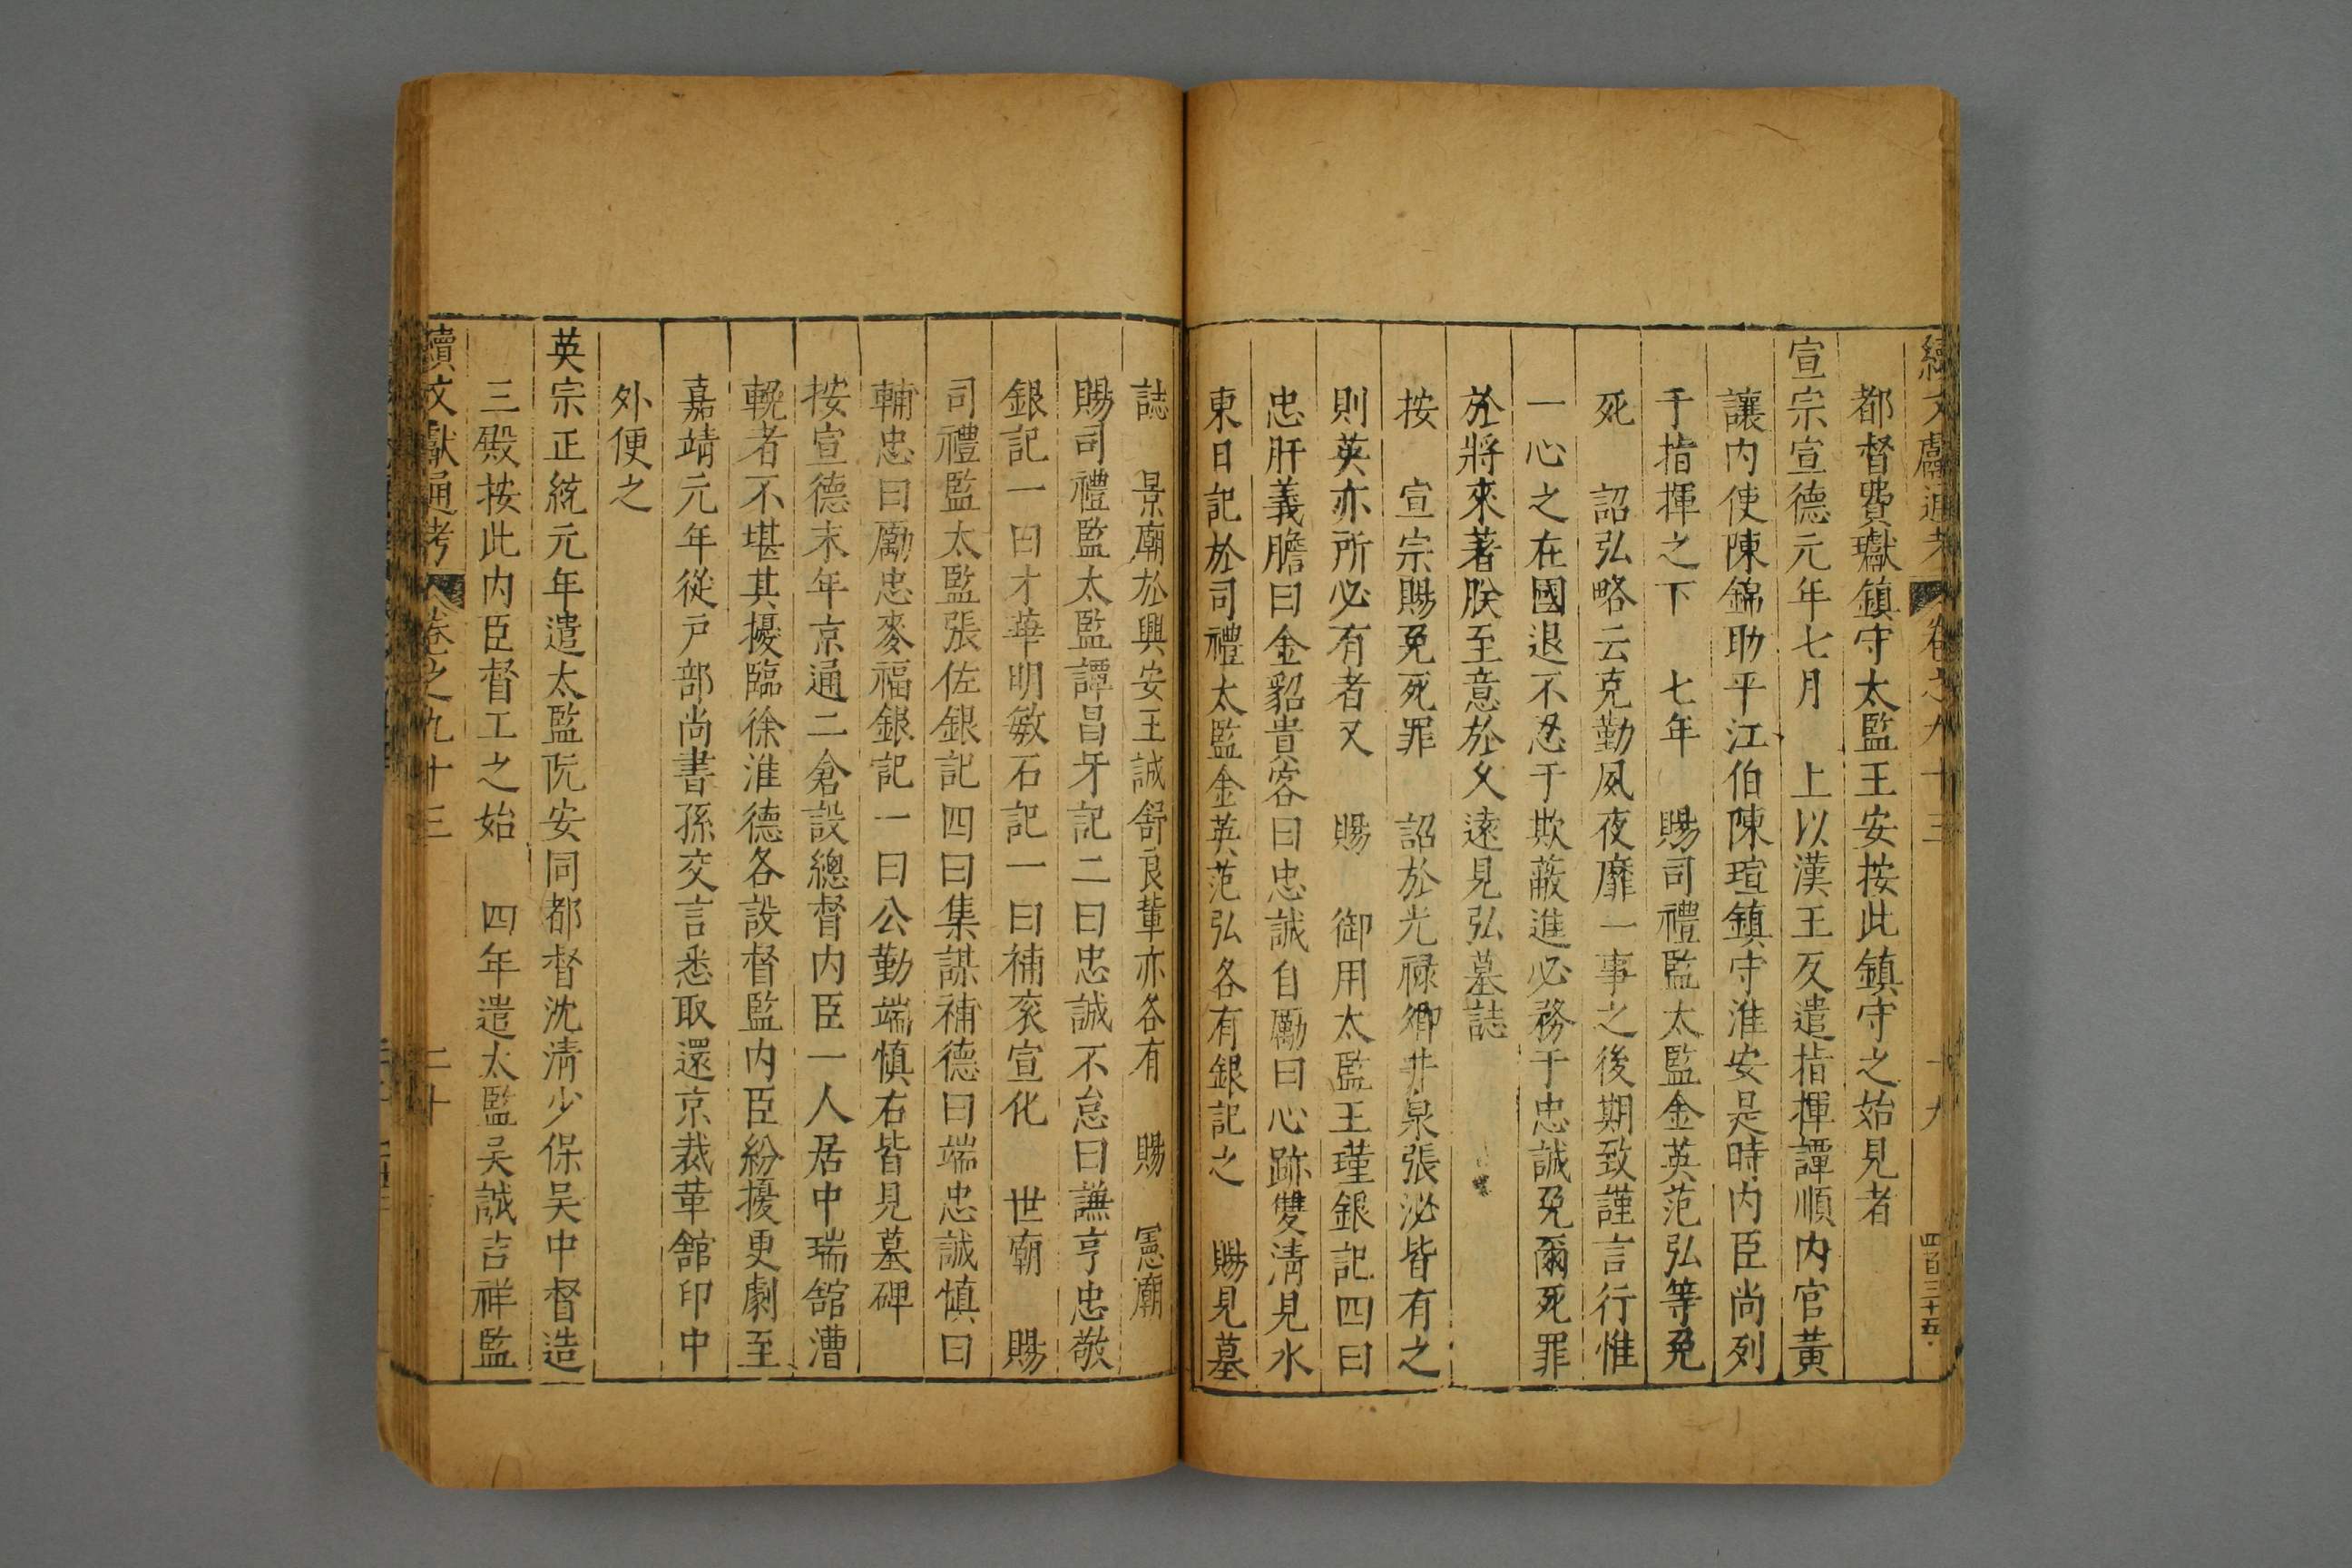 續文獻通考 卷之九十三 十九 四百三十五
都督費瓛鎮守太監王安按此鎮守之始見者
宣宗宣德元年七月 上以漢王反遣指揮譚順內官黃
讓內使陳錦助平江伯陳瑄鎮守淮安是時內臣尚列
于指揮之下 七年 賜司禮監太監金英范弘等免
死 詔弘略云克勤夙夜靡一事之後期致謹言行惟
一心之在國退不忍于欺蔽進必務于忠誠免爾死罪
於將來著朕至意於久遠見弘墓誌
按 宣宗賜免死罪 詔於光祿卿井泉張泌皆有之
則英亦所必有者又 賜 御用太監王瑾銀記四曰
忠肝義膽曰金貂貴客曰忠誠自勵曰心跡雙清見水
東日記於司禮太監金英范弘各有銀記之 賜見墓
誌 景廟於興安王誠舒良輩亦各有 賜 憲廟
賜司禮監太監譚昌牙記二曰忠誠不怠曰謙亨忠敬
銀記一曰才華明敏石記一曰補袞宣化 世廟 賜
司禮監太監張佐銀記四曰集謀補德曰端忠誠慎曰
輔忠曰勵忠麥福銀記一曰公勤端慎右皆見墓碑
按宣德末年京通二倉設總督內臣一人居中瑞館漕
輓者不堪其擾臨徐淮德各設督監內臣紛擾更劇至
嘉靖元年從戶部尚書孫交言悉取還京裁革館印中
外便之
英宗正統元年遣太監阮安同都督沈清少保吳中督造
三殿按此內臣督工之始 四年遣太監吳誠吉祥監
續文獻通考 卷之九十三 二十